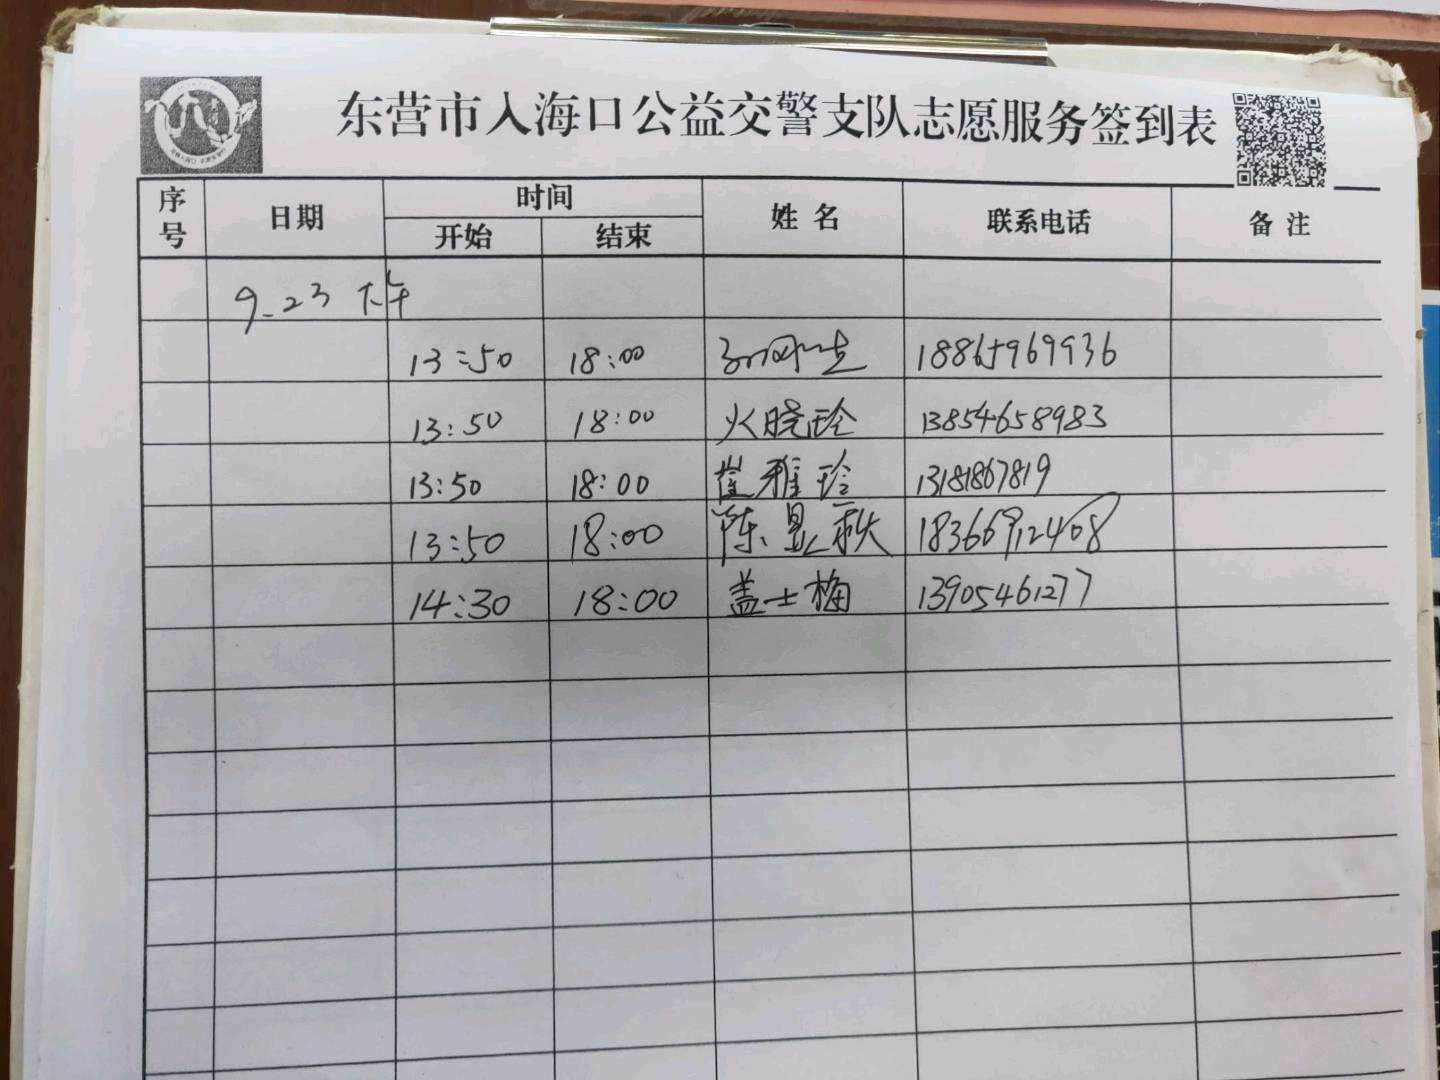 东营市入海口公益交警支队志愿服务签到表
序号 日期 时间 姓名 联系电话 备注
开始 结束
9.23 下午
13:50 18:00 18865969936
13:50 18:00 火晓玲 13854658983
13:50 18:00 崔雅玲 13181867819
13:50 18:00 陈昱秋 18366912408
14:30 18:00 盖士梅 13905461277